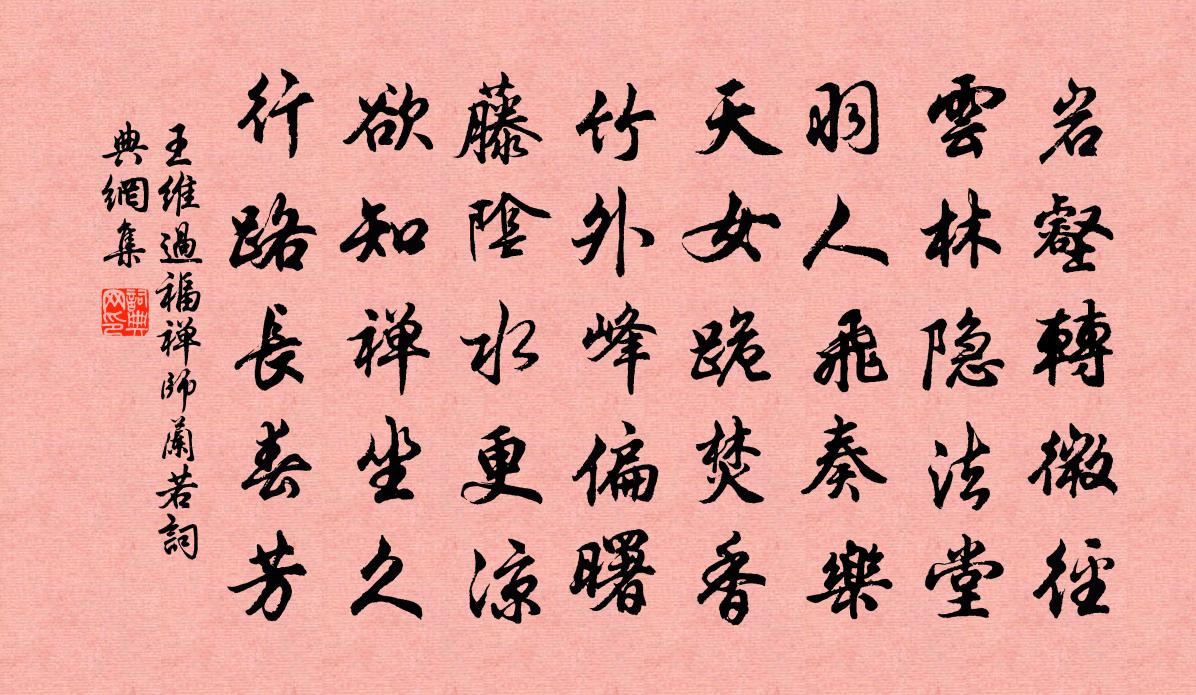 岩壑轉微徑
雲林隐法堂
羽人飛奏樂
天女跪焚香
竹外峰偏曙
藤陰水更涼
欲知禅坐久
行路長春芳
王維過福禅師蘭若詞
典網集
詞典
网印